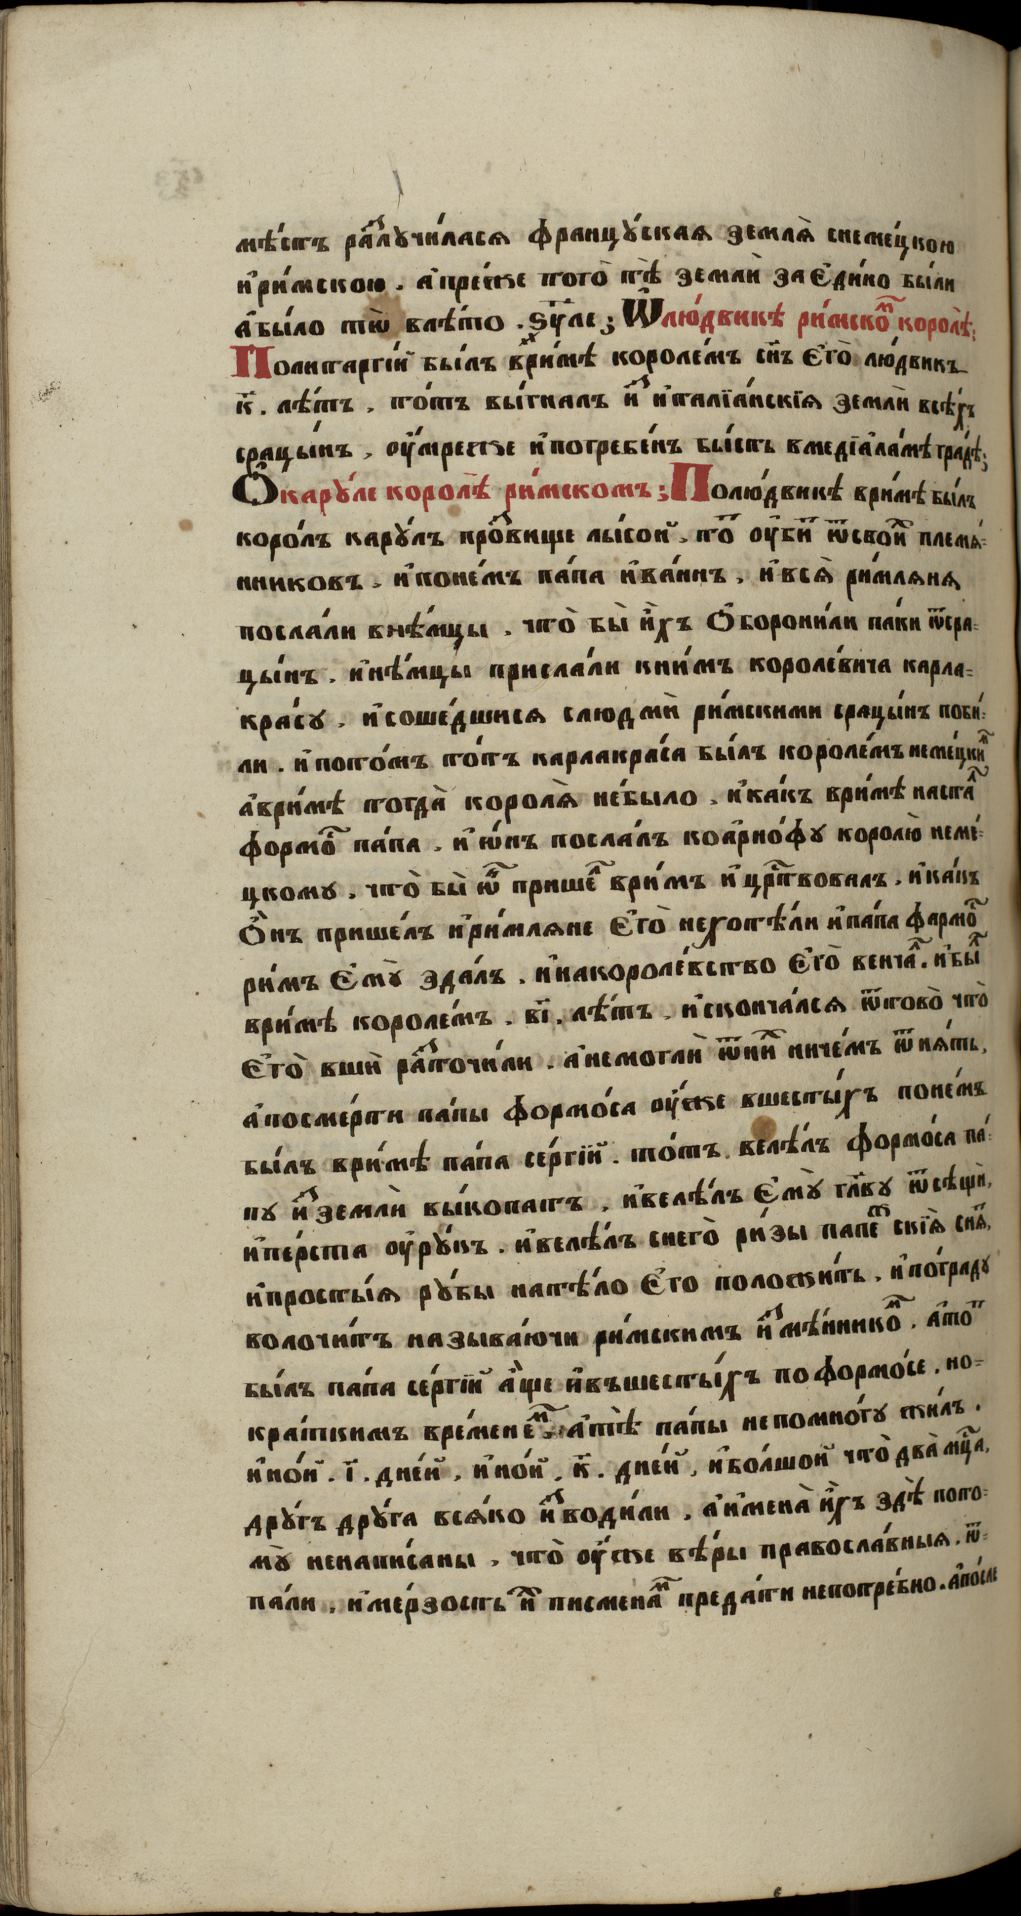 мѣстъ раⷥлучи́лася францу́ская землѧ̀ снеме́цкою
и҆ри́мскою . а҆пре́же тогѡ̀ тѣ̀ землѝ за є҆ди́но бы́ли
а҆бы́ло тѡ̀ влѣ́то . ѕ҃у҃ле ; Ѿлю́двикѣ ри́мскоⷨ королѣ̀ ;
Политаргі́й бы́лъ в̾ри́мѣ короле́мъ сн҃ъ є҆гѡ̀ лю́двикъ
к҃ . лѣ́тъ , то́тъ вы́гналъ и҆ⷥ и҆талїа́нскїѧ землѝ всѣ́хъ
срацы́нъ , оу҆́мреже и҆погребе́нъ бы́сть вмедїѡ҆ла́мѣ гра́дѣ ;
Ѻ҆кару́ле королѣ̀ ри́мскомъ ; Полю́двикѣ в ри́мѣ бы́лъ
коро́лъ кару́лъ проⷥвище лы́сой , тоⷮ оу҆биⷮ ѿсвоиⷯ племѧ́-
нниковъ , и҆поне́мъ па́па и҆ва́ннъ , и҆всѧ̀ ри́млѧнѧ
посла́ли внѣ́мцы , что̀ бы̀ и҆́хъ ѻ҆борони́ли па́ки ѿсра-
цы́нъ . и҆нѣ́мцы присла́ли кни́мъ короле́вича карла-
кра́су , и҆соше́дшисѧ слюдмѝ ри́мскими срацы́нъ поби́-
ли . и҆пото́мъ то́тъ карлакра́са бы́лъ короле́мъ неме́цкиⷨ
а҆ври́мѣ тогда̀ королѧ̀ не́было , и҆ка́къ ври́мѣ настаⷧ
формоⷭ па́па , и҆ ѡ҆́нъ посла́лъ коа҆рно́фу королю̀ неме́-
цкому , что̀ бы̀ ѡ҆ⷩ прише́ⷧ ври́мъ и҆ црⷭ҇твовалъ , и҆ка́къ
ѻ҆́нъ прише́лъ и҆ри́млѧне є҆го̀ нехотѣ́ли и҆па́па фармоⷭ
ри́мъ є҆мꙋ̀ зда́лъ , и҆накороле́вство є҆го̀ венчаⷧ . и҆быⷧ
ври́мѣ короле́мъ . в҃і . лѣ́тъ , и҆сконча́лсѧ ѿтово̀ что̀
є҆го̀ вшѝ раⷥточи́ли . а҆немоглѝ ѿниⷯ ниче́мъ ѿнѧ́ть ,
а҆посме́рти па́пы формо́са оу҆́же вшесты́хъ поне́мъ
бы́лъ ври́мѣ па́па се́ргїй . то́тъ велѣ́лъ формо́са па́-
пу и҆ⷥ землѝ вы́копатъ , и҆велѣ́лъ є҆мꙋ̀ гл҃ву ѿсѣщѝ ,
и҆пе́рста оу҆ру́къ . и҆велѣ́лъ снего̀ ри́зы папеⷭ скїѧ̀ снѧⷮ ,
и҆просты́ѧ ру́бы натѣ́ло є҆го положи́ть , и҆по́граду
волочи́тъ называ́ючи ри́мскимъ и҆ⷥмѣ́нникоⷨ . а҆тоⷮ
бы́лъ па́па се́ргїй а҆́ще и҆въшесты́хъ по формо́се . но-
кра́ткимъ вре́менеⷨ . а҆тѣ̀ па́пы непомно́гу жи́лъ .
и҆но́й . і҃ . дне́й , и҆но́й . к҃ . дне́й , и҆бо́лшой что̀ два̀ мцⷭ҇а ,
дру́гъ дру́га всѧ́ко и҆ⷥводи́ли , а҆имена̀ и҆́хъ здѣ̀ пото-
мꙋ̀ ненапи́саны , что̀ оу҆́же вѣ́ры правосла́вныѧ ѿ-
па́ли , и҆ме́рзость иⷯ писменаⷨ преда́ти непотре́бно . а҆по́сле